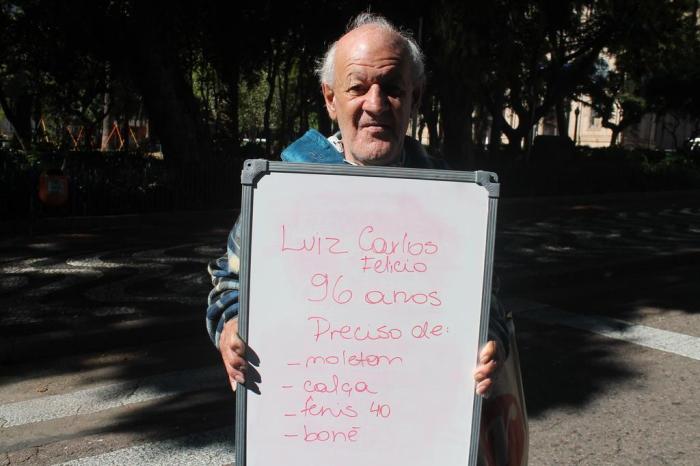 Luiz Carlos
Felicio
96 anos
Preciso de:
- moletom
- calça
- tenis 40
- boné